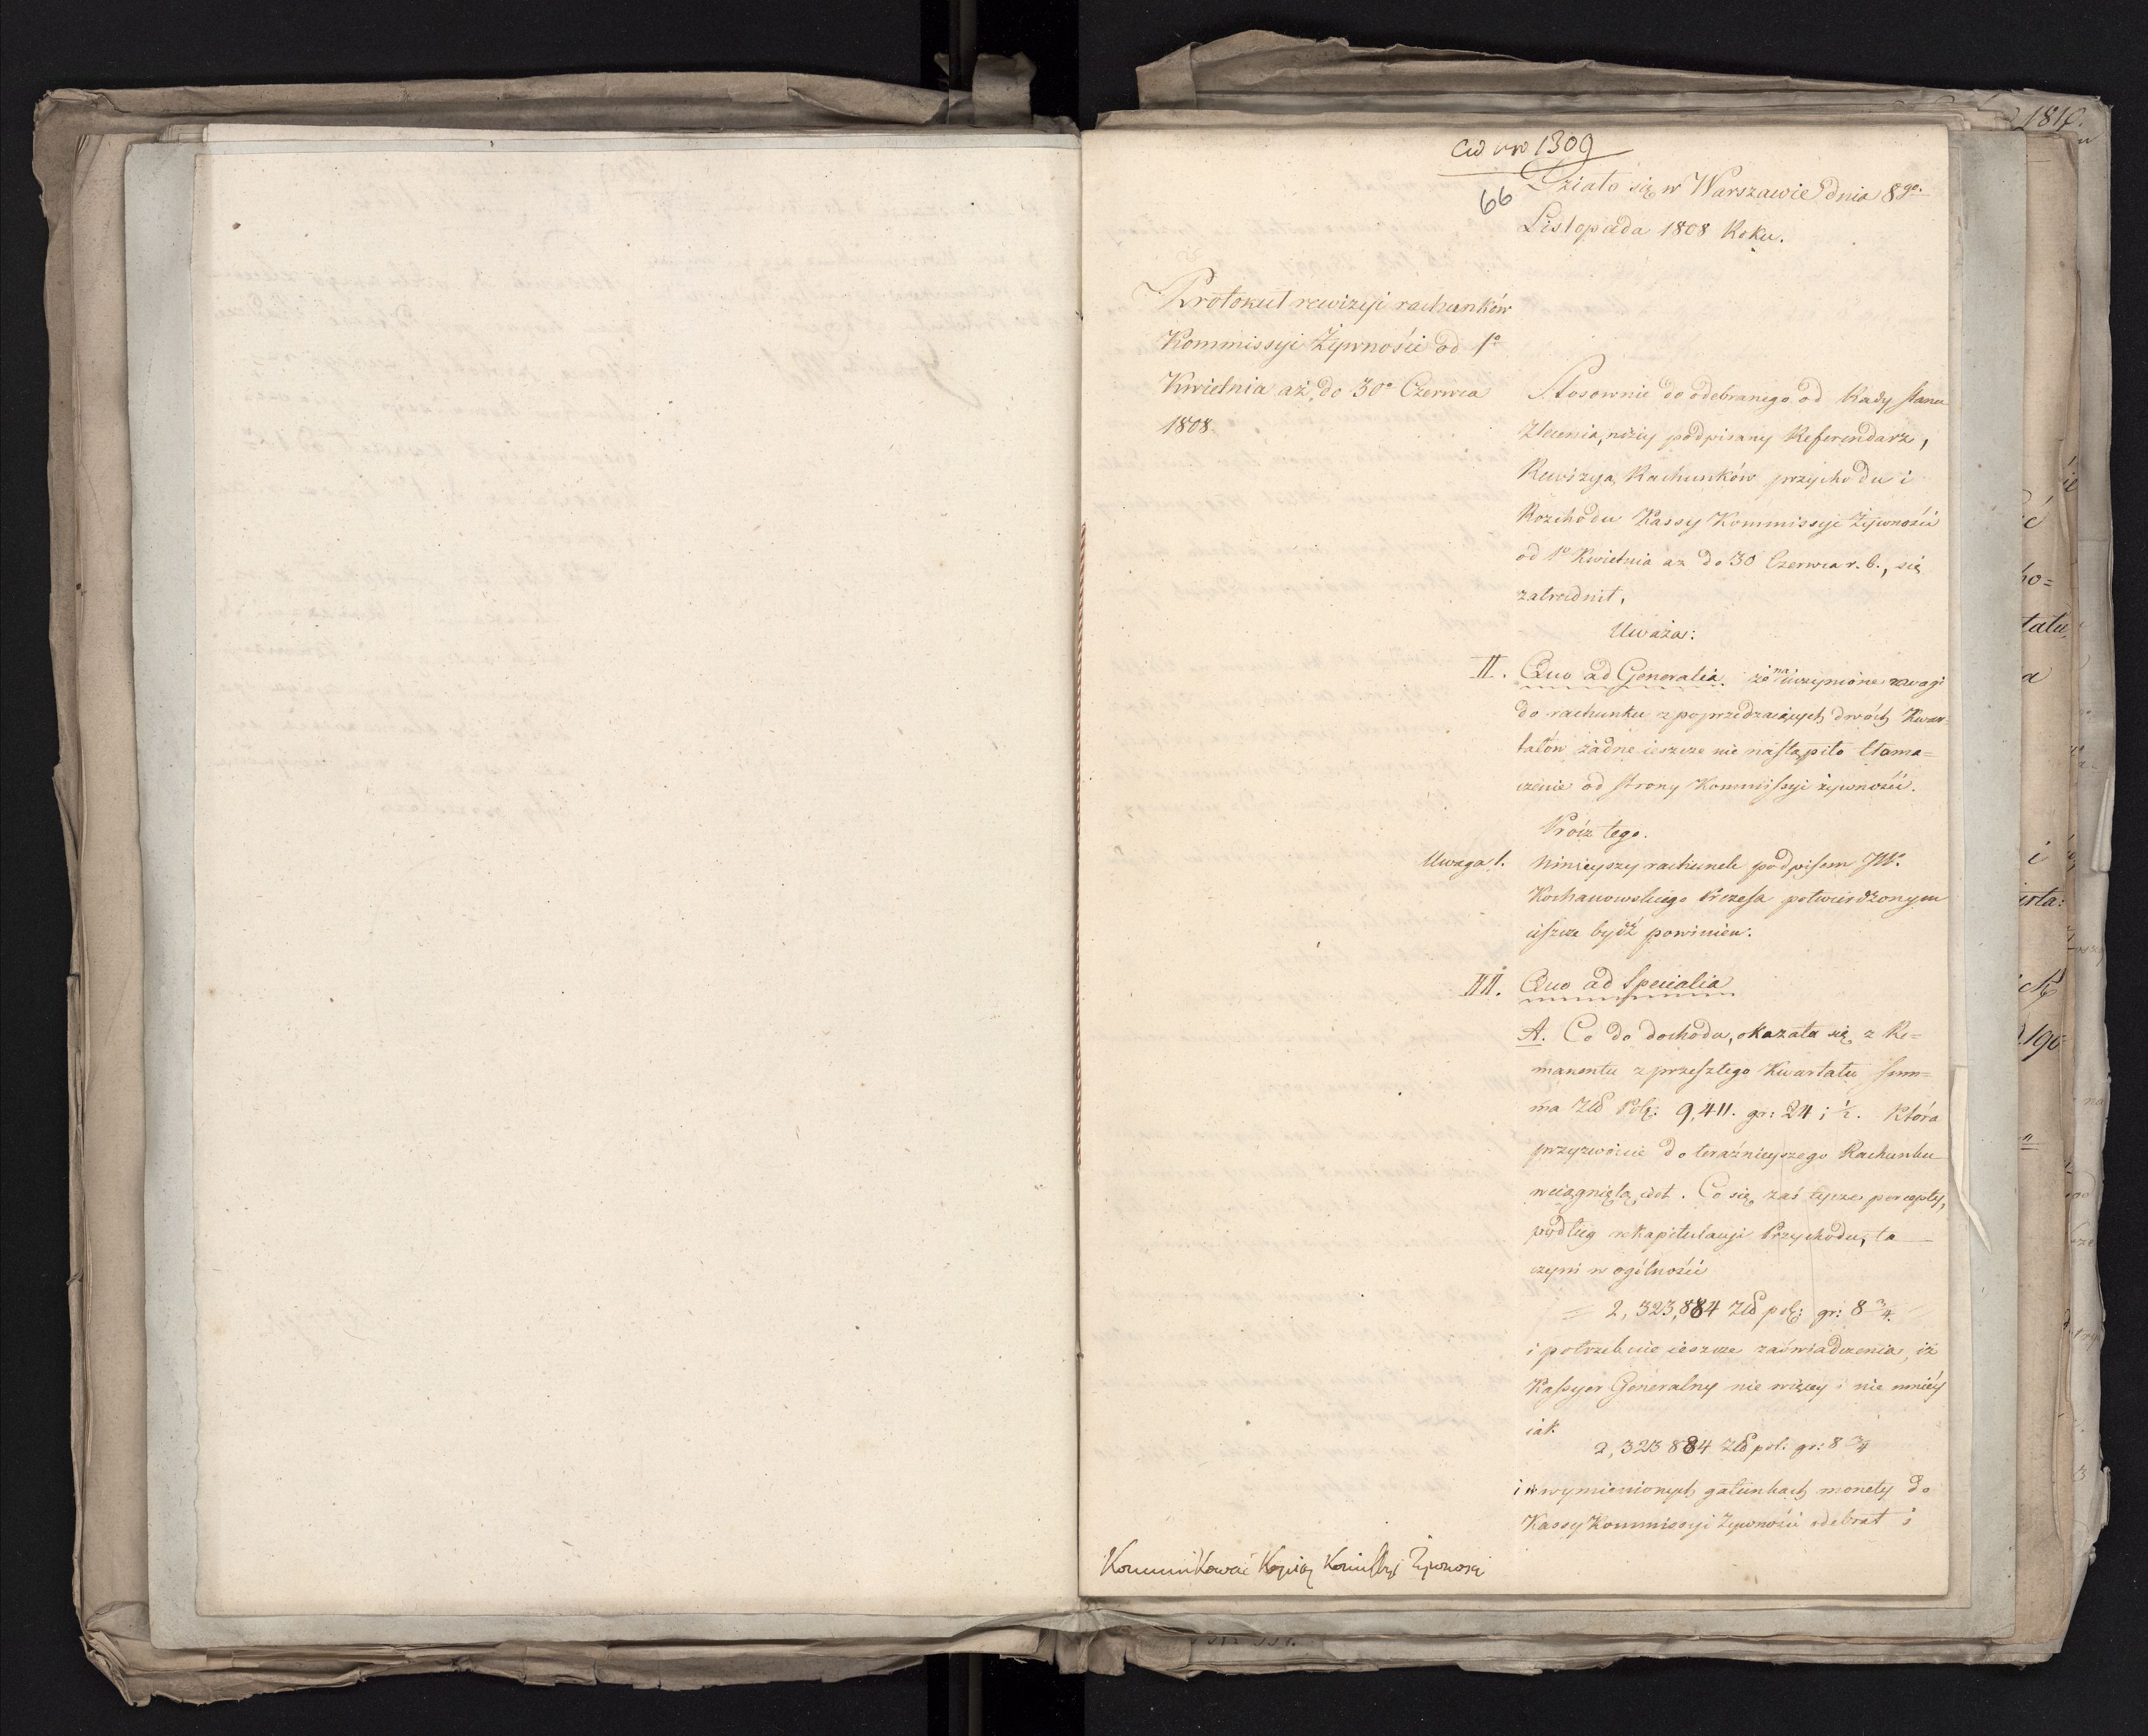 ad nro 1309
66
Działo się w Warszawie dnia 8go.
Listopada 1808 Roku.
Protokuł rewizyi rachunków
Kommissyi Żywności od 1o
Kwietnia aż do 30o Czerwca
1808.
Stosownie do odebranego od Rady stanu
zlecenia, niżey podpisany Referendarz,
Rewizyą Rachunków przychodu i
Rozchodu Kassy Kommissyi Żywności
od 1o Kwietnia aż do 30 Czerwca r. b., się
zatrudnił,
Uważa:
II. Quo ad Generalia. że na uczynione uwagi
do rachunku z poprzedzaiących dwóch Kwar-
tałów żadne ieszcze nie nastąpiło tłoma=
czenie od strony Kommissyi żywności.
Prócz tego.
Uwaga 1. Ninieyszy rachunek podpisem JW.
Kochanowskiego Prezesa potwierdzonym
ieszcze bydź powinien.
III. Quo ad Specialia
A. Co do dochodu, okazała się z Re=
manentu z przeszłego Kwartału sum=
ma Zło Pol: 9,411. gr: 24 i ½. Która
przyzwoicie do teraźnieyszego Rachunku
wciągnięta iest. Co się zaś tycze percepty,
podług rekapitulacyi Przychodu, ta
czyni w ogólności
= 2,323,884 Zło pol: gr: 8 ¾.
i potrzebuie ieszcze zaświadczenia, iż
Kassyer Generalny nie więcey i nie mniéy
iak
2,323 884 Zło pol: gr: 8 ¾
i w wymienionych gatunkach monety do
Kassy Kommissyi Żywności odebrał i
Kommunikować Kopią Komissyi Żywności
1810.